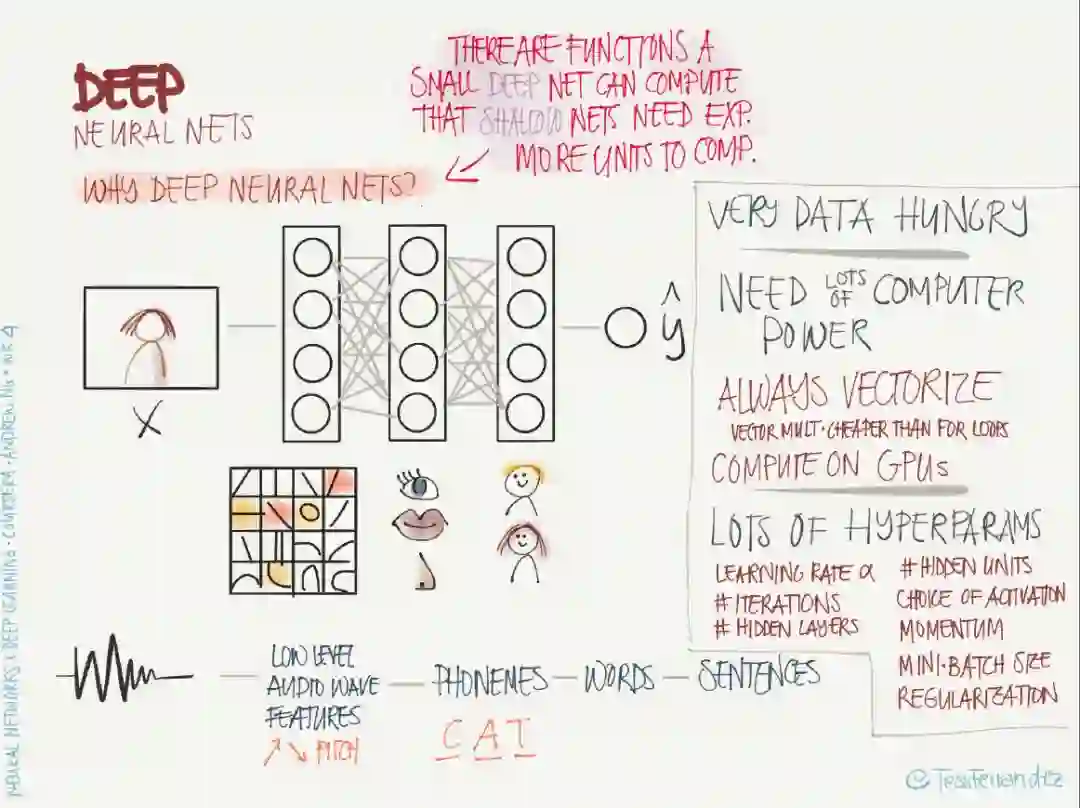 DEEP
NEURAL NETS
WHY DEEP NEURAL NETS?
THERE ARE FUNCTIONS A
SMALL DEEP NET CAN COMPUTE
THAT SHALLOW NETS NEED EXP.
MORE UNITS TO COMP.
X
ŷ
VERY DATA HUNGRY
NEED LOTS OF COMPUTER
POWER
ALWAYS VECTORIZE
VECTOR MULT. CHEAPER THAN FOR LOOPS
COMPUTE ON GPUs
LOTS OF HYPERPARAMS
LEARNING RATE α
# ITERATIONS
# HIDDEN LAYERS
# HIDDEN UNITS
CHOICE OF ACTIVATION
MOMENTUM
MINI-BATCH SIZE
REGULARIZATION
LOW LEVEL
AUDIO WAVE
FEATURES
↗↘ PITCH
PHONEMES
C A T
WORDS
SENTENCES
NEURAL NETWORKS & DEEP LEARNING · COURSERA · ANDREW NG
@TessFerrandez